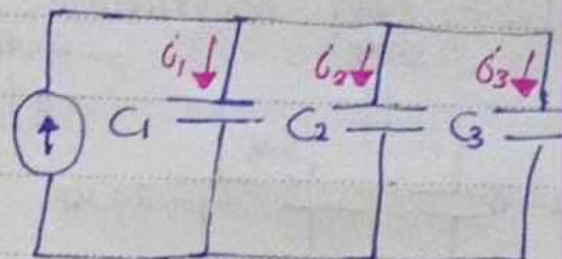 i₁ i₂ i₃
C₁ C₂ C₃